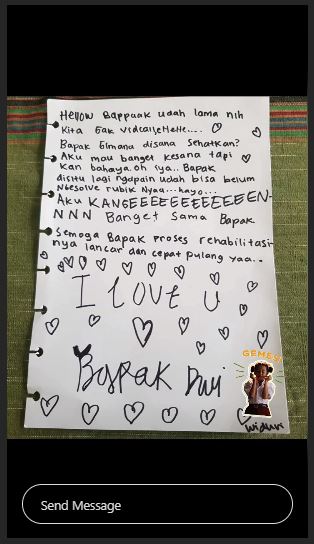 Hellow Bappaak udah lama nih
kita gak vidcallHeHe....
Bapak Gimana disana Sehatkan?
Aku mau banget kesana tapi
kan bahaya. oh iya.. Bapak
disitu lagi ngapain udah bisa belum
ngesolve rubik Nyaa...hayo...
Aku KANGEEEEEEEEEEEEEEN-
NNN Banget Sama Bapak
Semoga Bapak proses rehabilitasi-
nya lancar dan cepat pulang yaa..
I LOVE U
Bapak Dwi
GEMES!
Widuri
Send Message